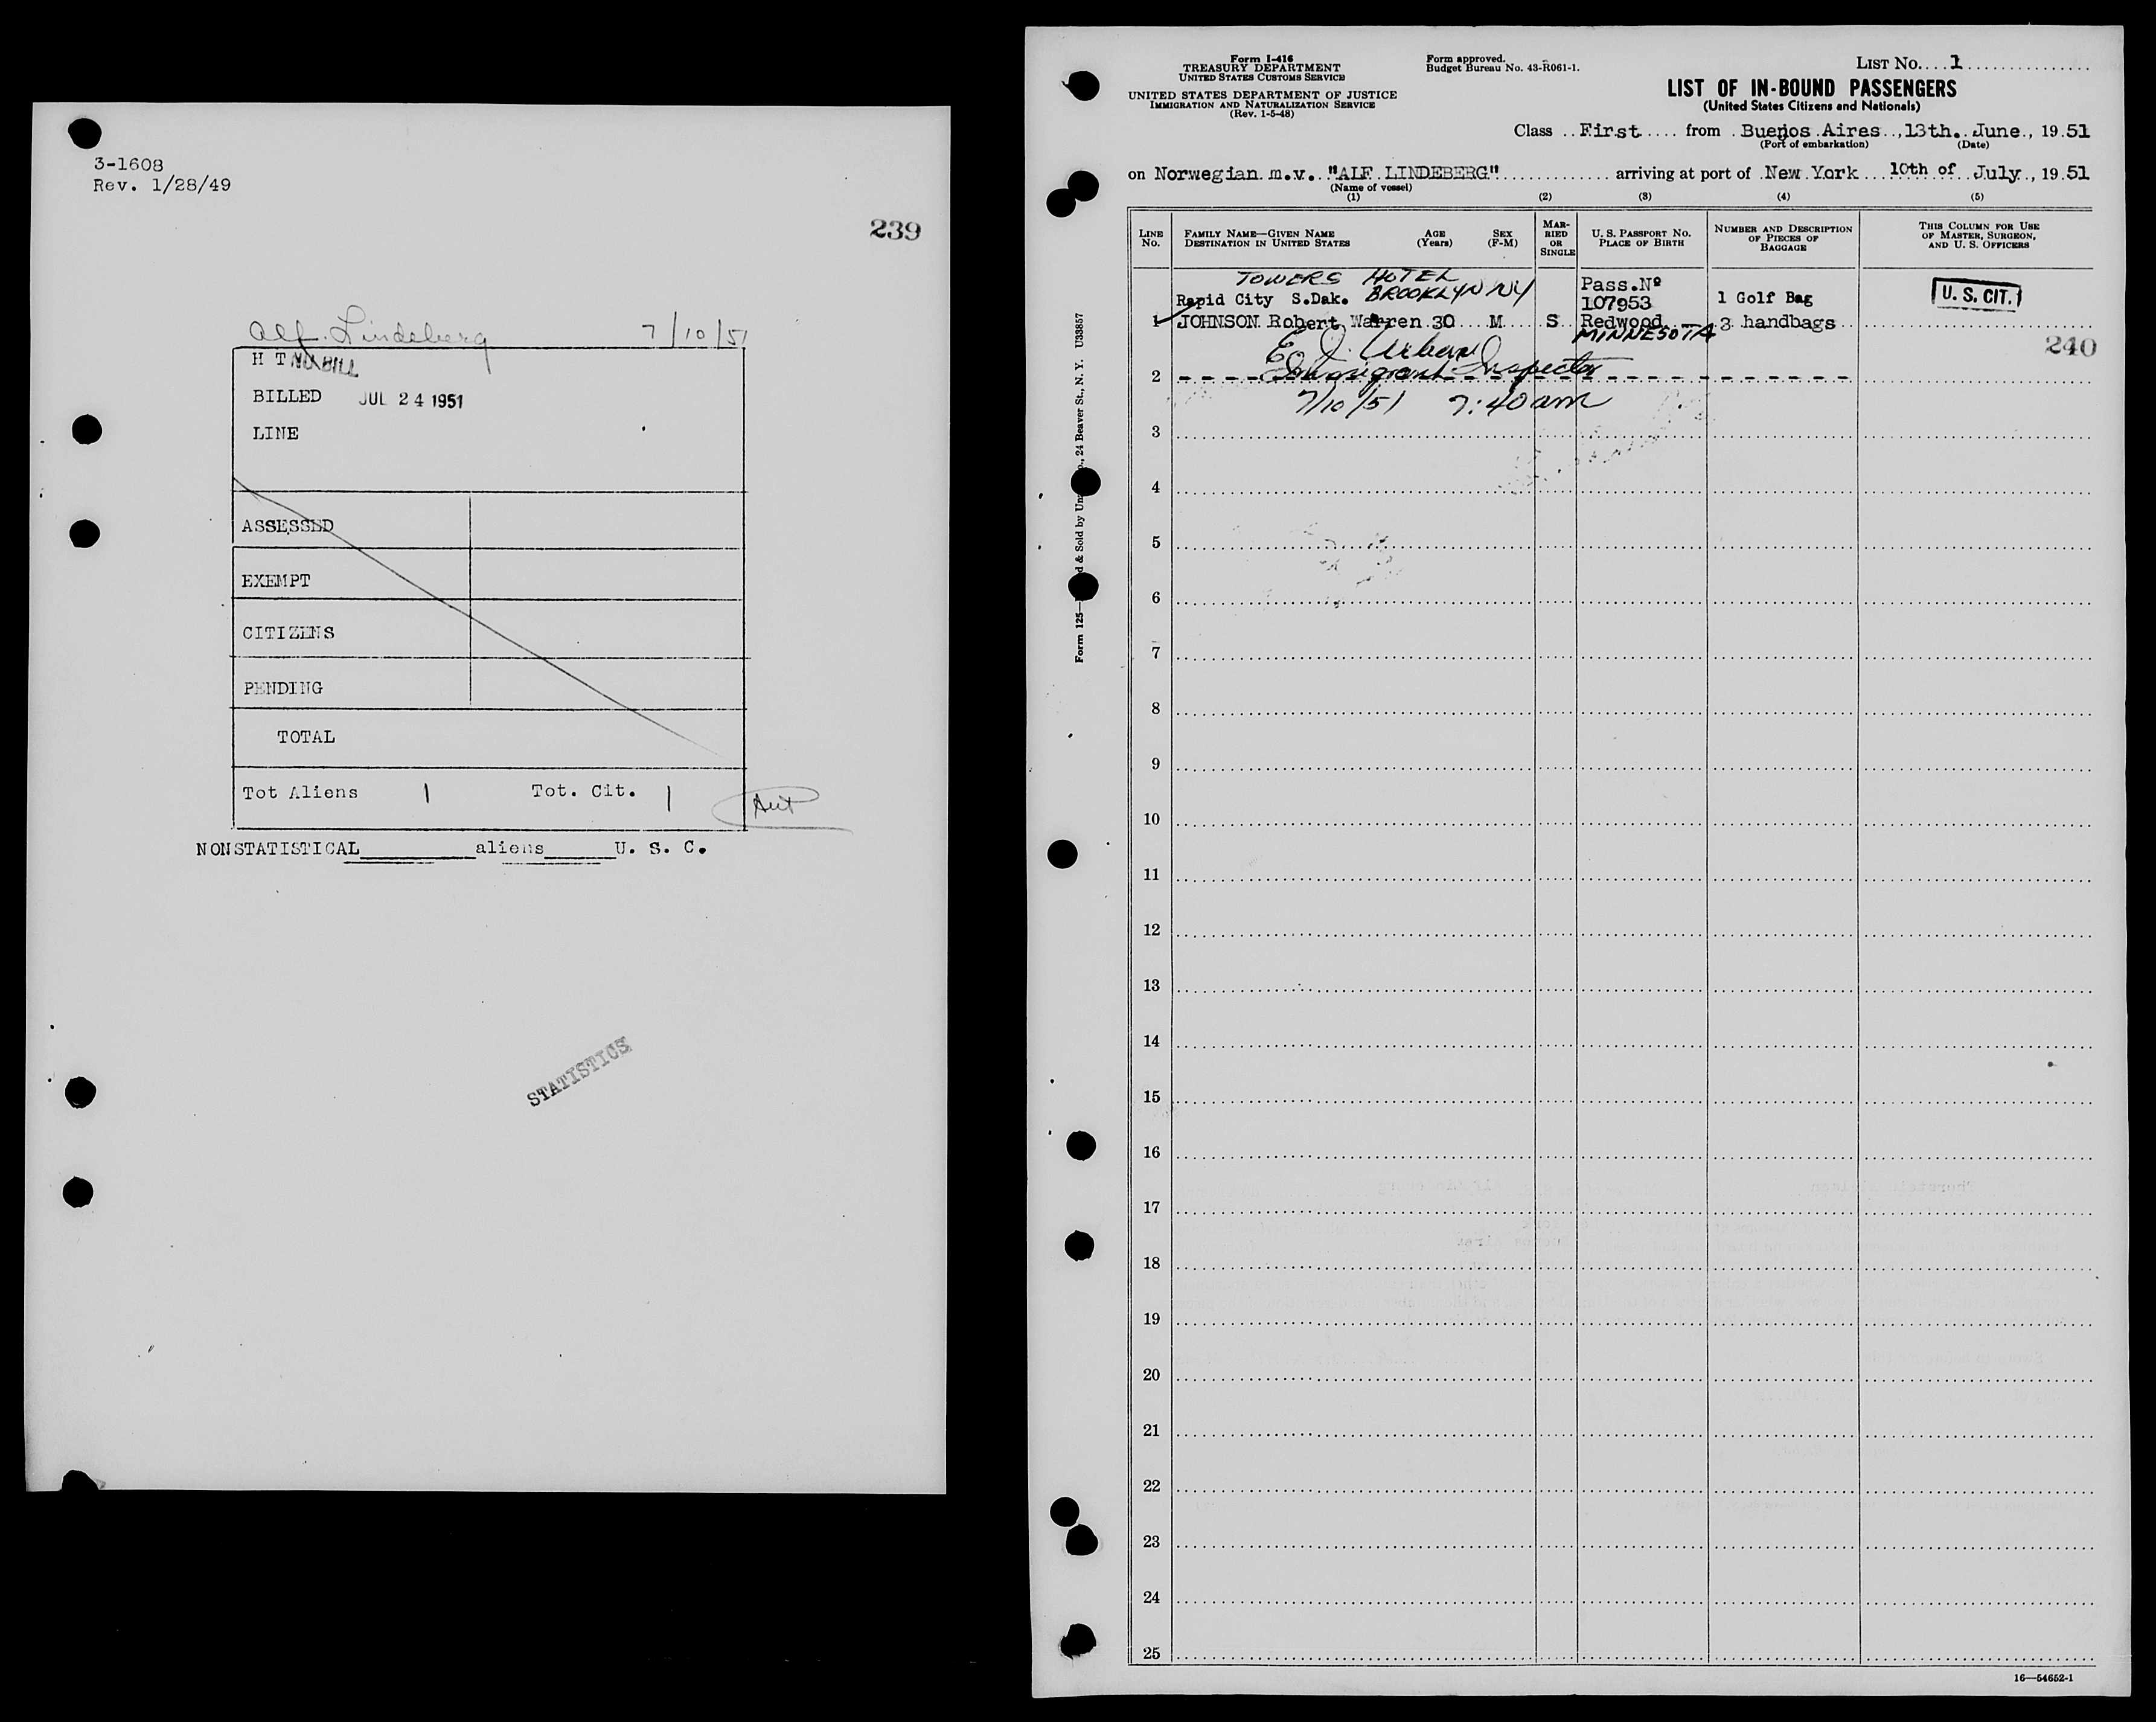 3-1608
Rev. 1/28/49
239
Alf. Lindeberg 7/10/51
H T NO BILL
BILLED JUL 24 1951
LINE
ASSESSED
EXEMPT
CITIZENS
PENDING
TOTAL
Tot Aliens 1 Tot. Cit. 1
NONSTATISTICAL aliens U. S. C.
STATISTICS
Form I-416
TREASURY DEPARTMENT
UNITED STATES CUSTOMS SERVICE
UNITED STATES DEPARTMENT OF JUSTICE
IMMIGRATION AND NATURALIZATION SERVICE
(Rev. 1-5-48)
Form approved.
Budget Bureau No. 43-R061-1.
LIST No. 1
LIST OF IN-BOUND PASSENGERS
(United States Citizens and Nationals)
Class First from Buenos Aires, 13th. June, 1951
(Port of embarkation) (Date)
on Norwegian m.v. "ALF LINDEBERG" arriving at port of New York 10th of July, 1951
(Name of vessel)
(1) (2) (3) (4) (5)
LINE No.
FAMILY NAME—GIVEN NAME
DESTINATION IN UNITED STATES
AGE (Years)
SEX (F-M)
MARRIED OR SINGLE
U. S. PASSPORT No.
PLACE OF BIRTH
NUMBER AND DESCRIPTION OF PIECES OF BAGGAGE
THIS COLUMN FOR USE OF MASTER, SURGEON, AND U. S. OFFICERS
TOWERS HOTEL
Rapid City S.Dak. BROOKLYN NY
Pass.Nº
107953
1 Golf Bag
U. S. CIT.
1 JOHNSON Robert Warren 30 M S Redwood 3 handbags
MINNESOTA
240
E. J. Urban
2 Immigrant Inspector
7/10/51 7:40 am
3
4
5
6
7
8
9
10
11
12
13
14
15
16
17
18
19
20
21
22
23
24
25
16—54652-1
24 Beaver St., N. Y. U33857
& Sold by
Form 125—